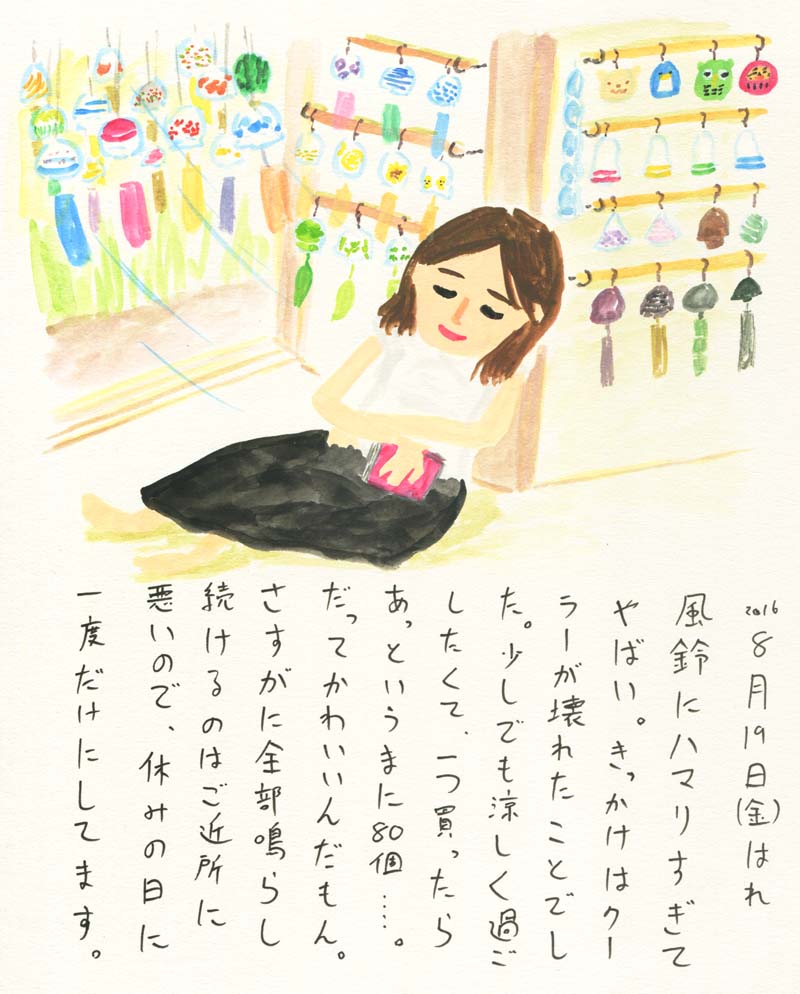 2016 8月19日(金)はれ
風鈴にハマりすぎて
やばい。きっかけはクー
ラーが壊れたことでし
た。少しでも涼しく過ご
したくて、一つ買ったら
あっというまに80個……。
だってかわいいんだもん。
さすがに全部鳴らし
続けるのはご近所に
悪いので、休みの日に
一度だけにしてます。